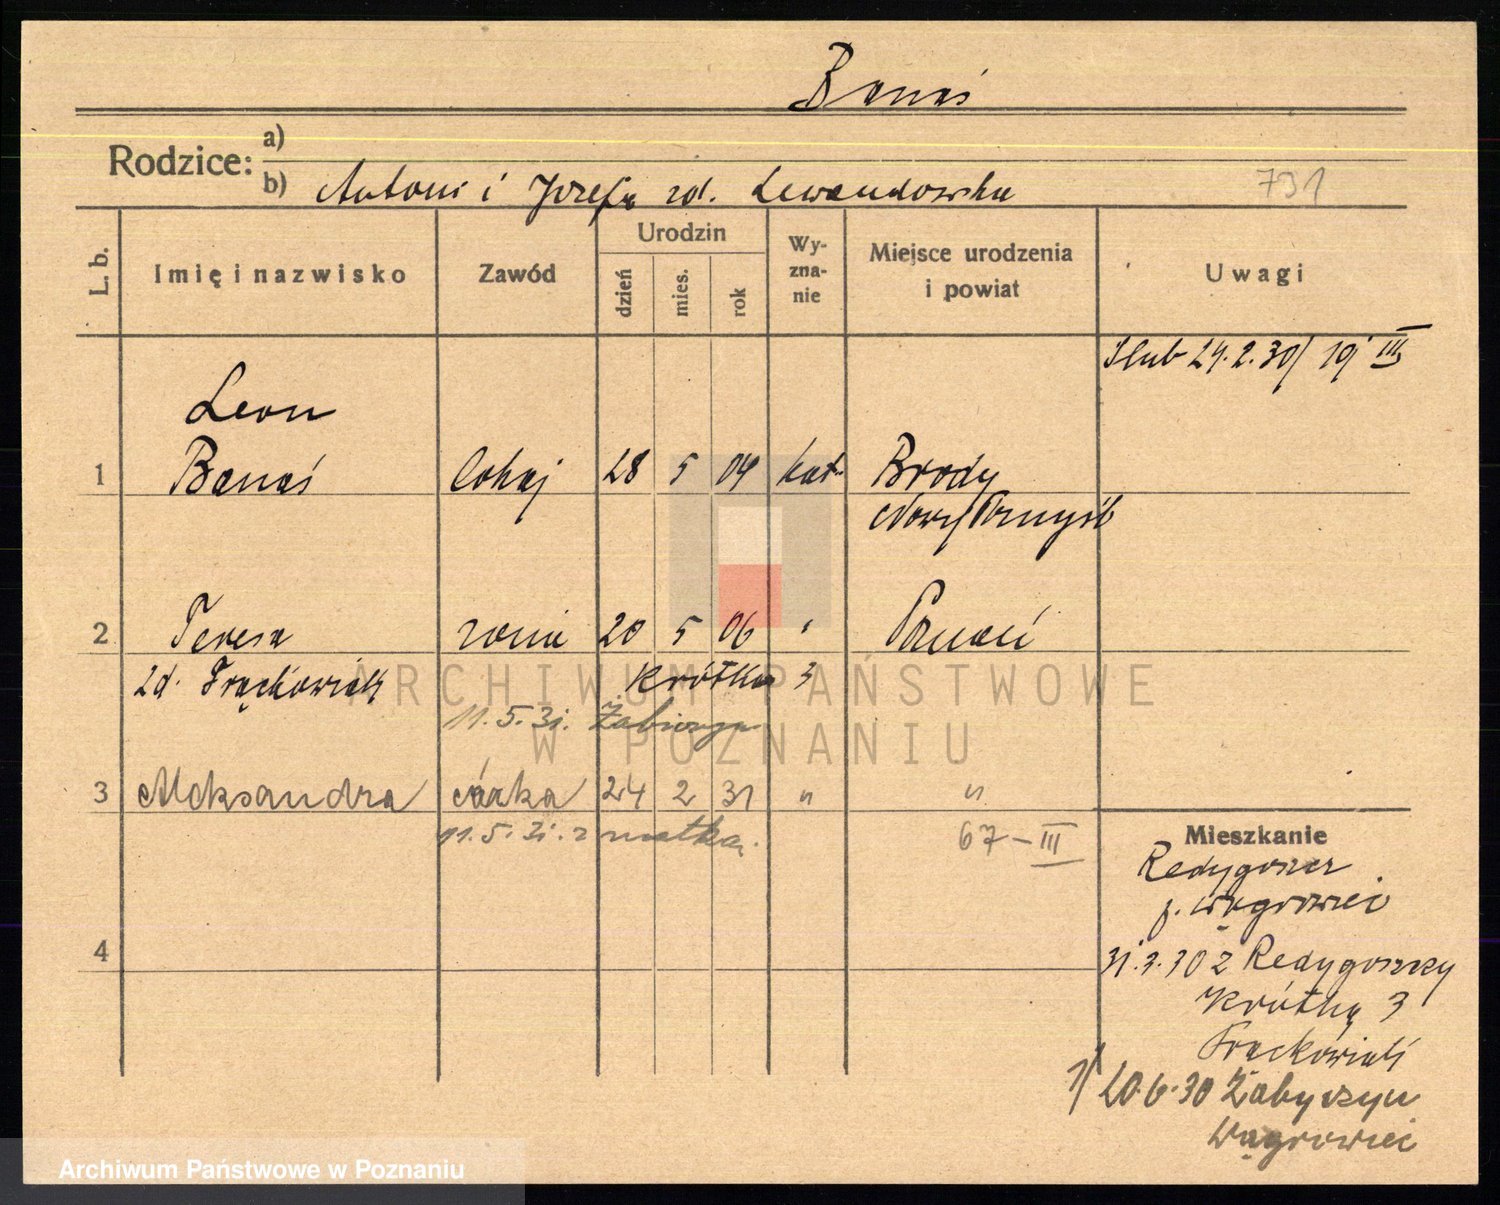 Banaś
Rodzice: a)
b) Antoni i Józefa zd. Lewandowska 731
L. b. Imię i nazwisko Zawód Urodzin dzień mies. rok Wy-zna-nie Miejsce urodzenia i powiat Uwagi
Ślub 24.2.30/ 19 III
Leon
1 Banaś lokaj 28 5 04 kat. Brody
Nowy Tomyśl
2 Teresa żona 20 5 06 " Poznań
zd. Frąckowiak Krótka 3
11.5.31.
3 Aleksandra córka 24 2 31 " "
11.5.31. z matką. 67-III
Mieszkanie
p. Wągrowiec
4
31.3.30 z
Krótka 3
Frąckowiak
1/ 20.6.30 Żabyczyn
Wągrowiec
ARCHIWUM PAŃSTWOWE
W POZNANIU
Archiwum Państwowe w Poznaniu